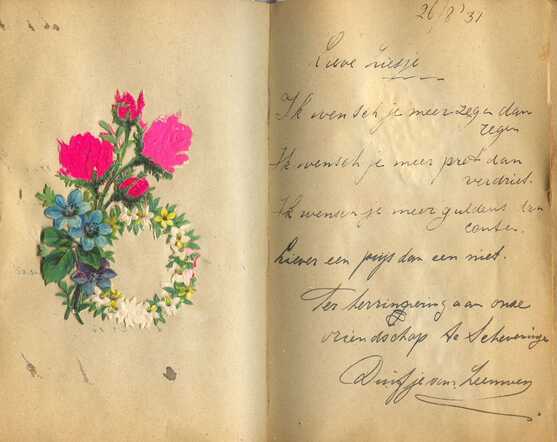 26/8 '31
Lieve Miesje
Ik wensch je meer zegen dan
regen
Ik wensch je meer pret dan
verdriet.
Ik wensch je meer guldens dan
centen.
Liever een prijs dan een niet.
Ter herinnering aan onze
vriendschap te Scheveningen
Duifje van Leeuwen